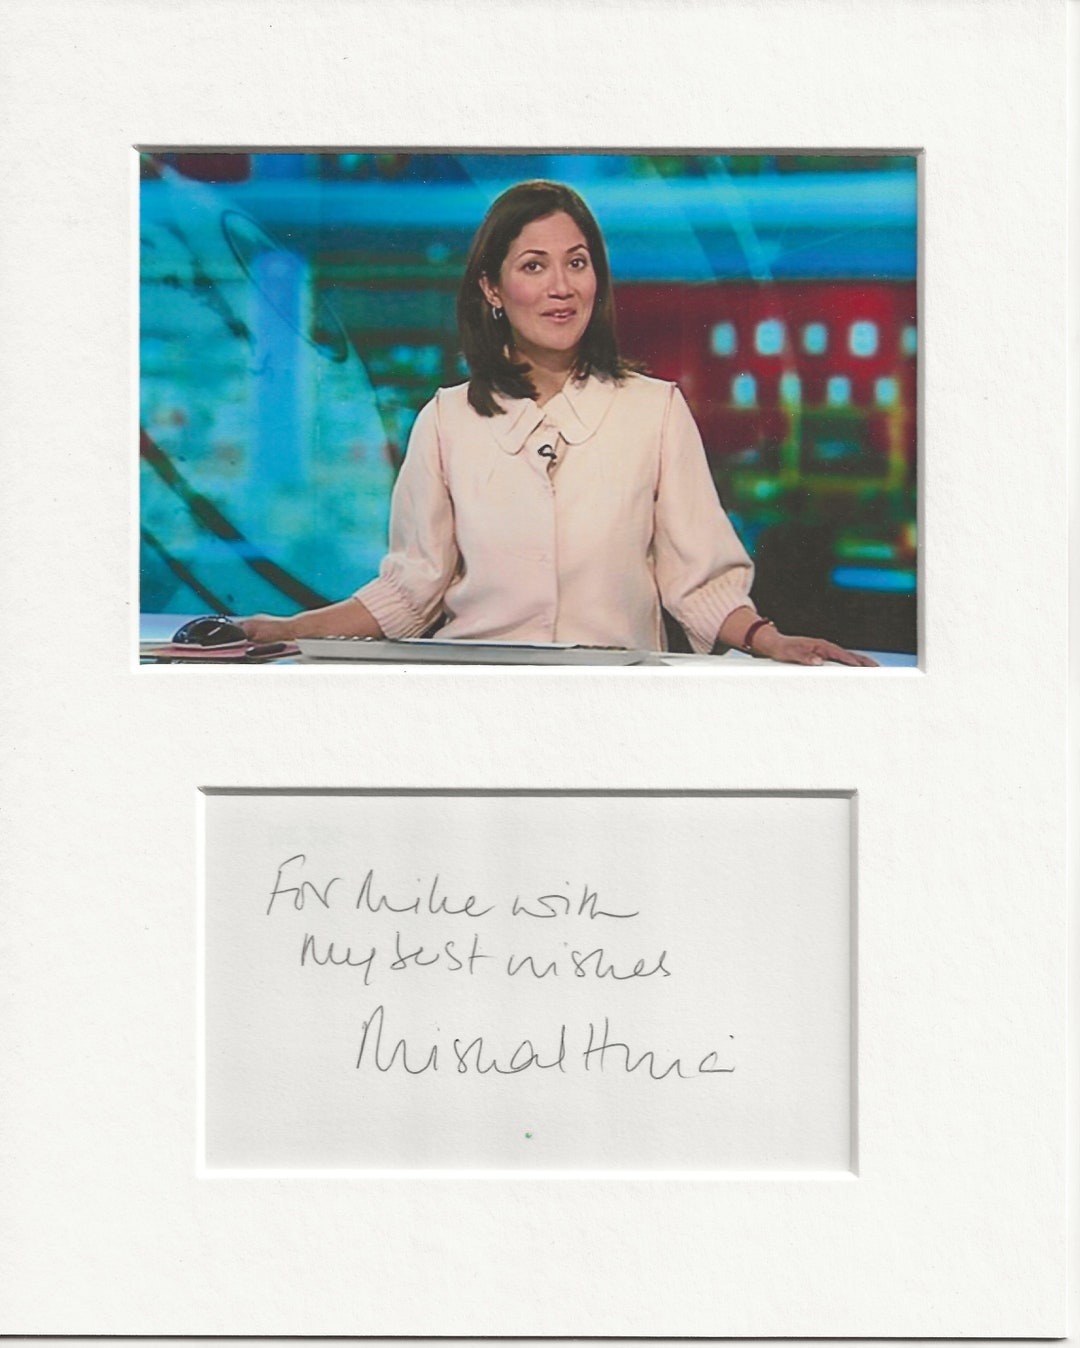 For Mike with
my best wishes
Mishal Husain